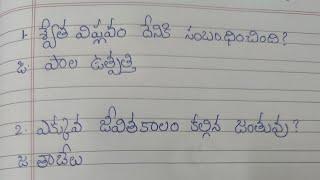 1. శ్వేత విప్లవం దేనికి సంబంధించింది?
జ. పాల ఉత్పత్తి
2. ఎక్కువ జీవితకాలం కల్గిన జంతువు?
జ తాబేలు